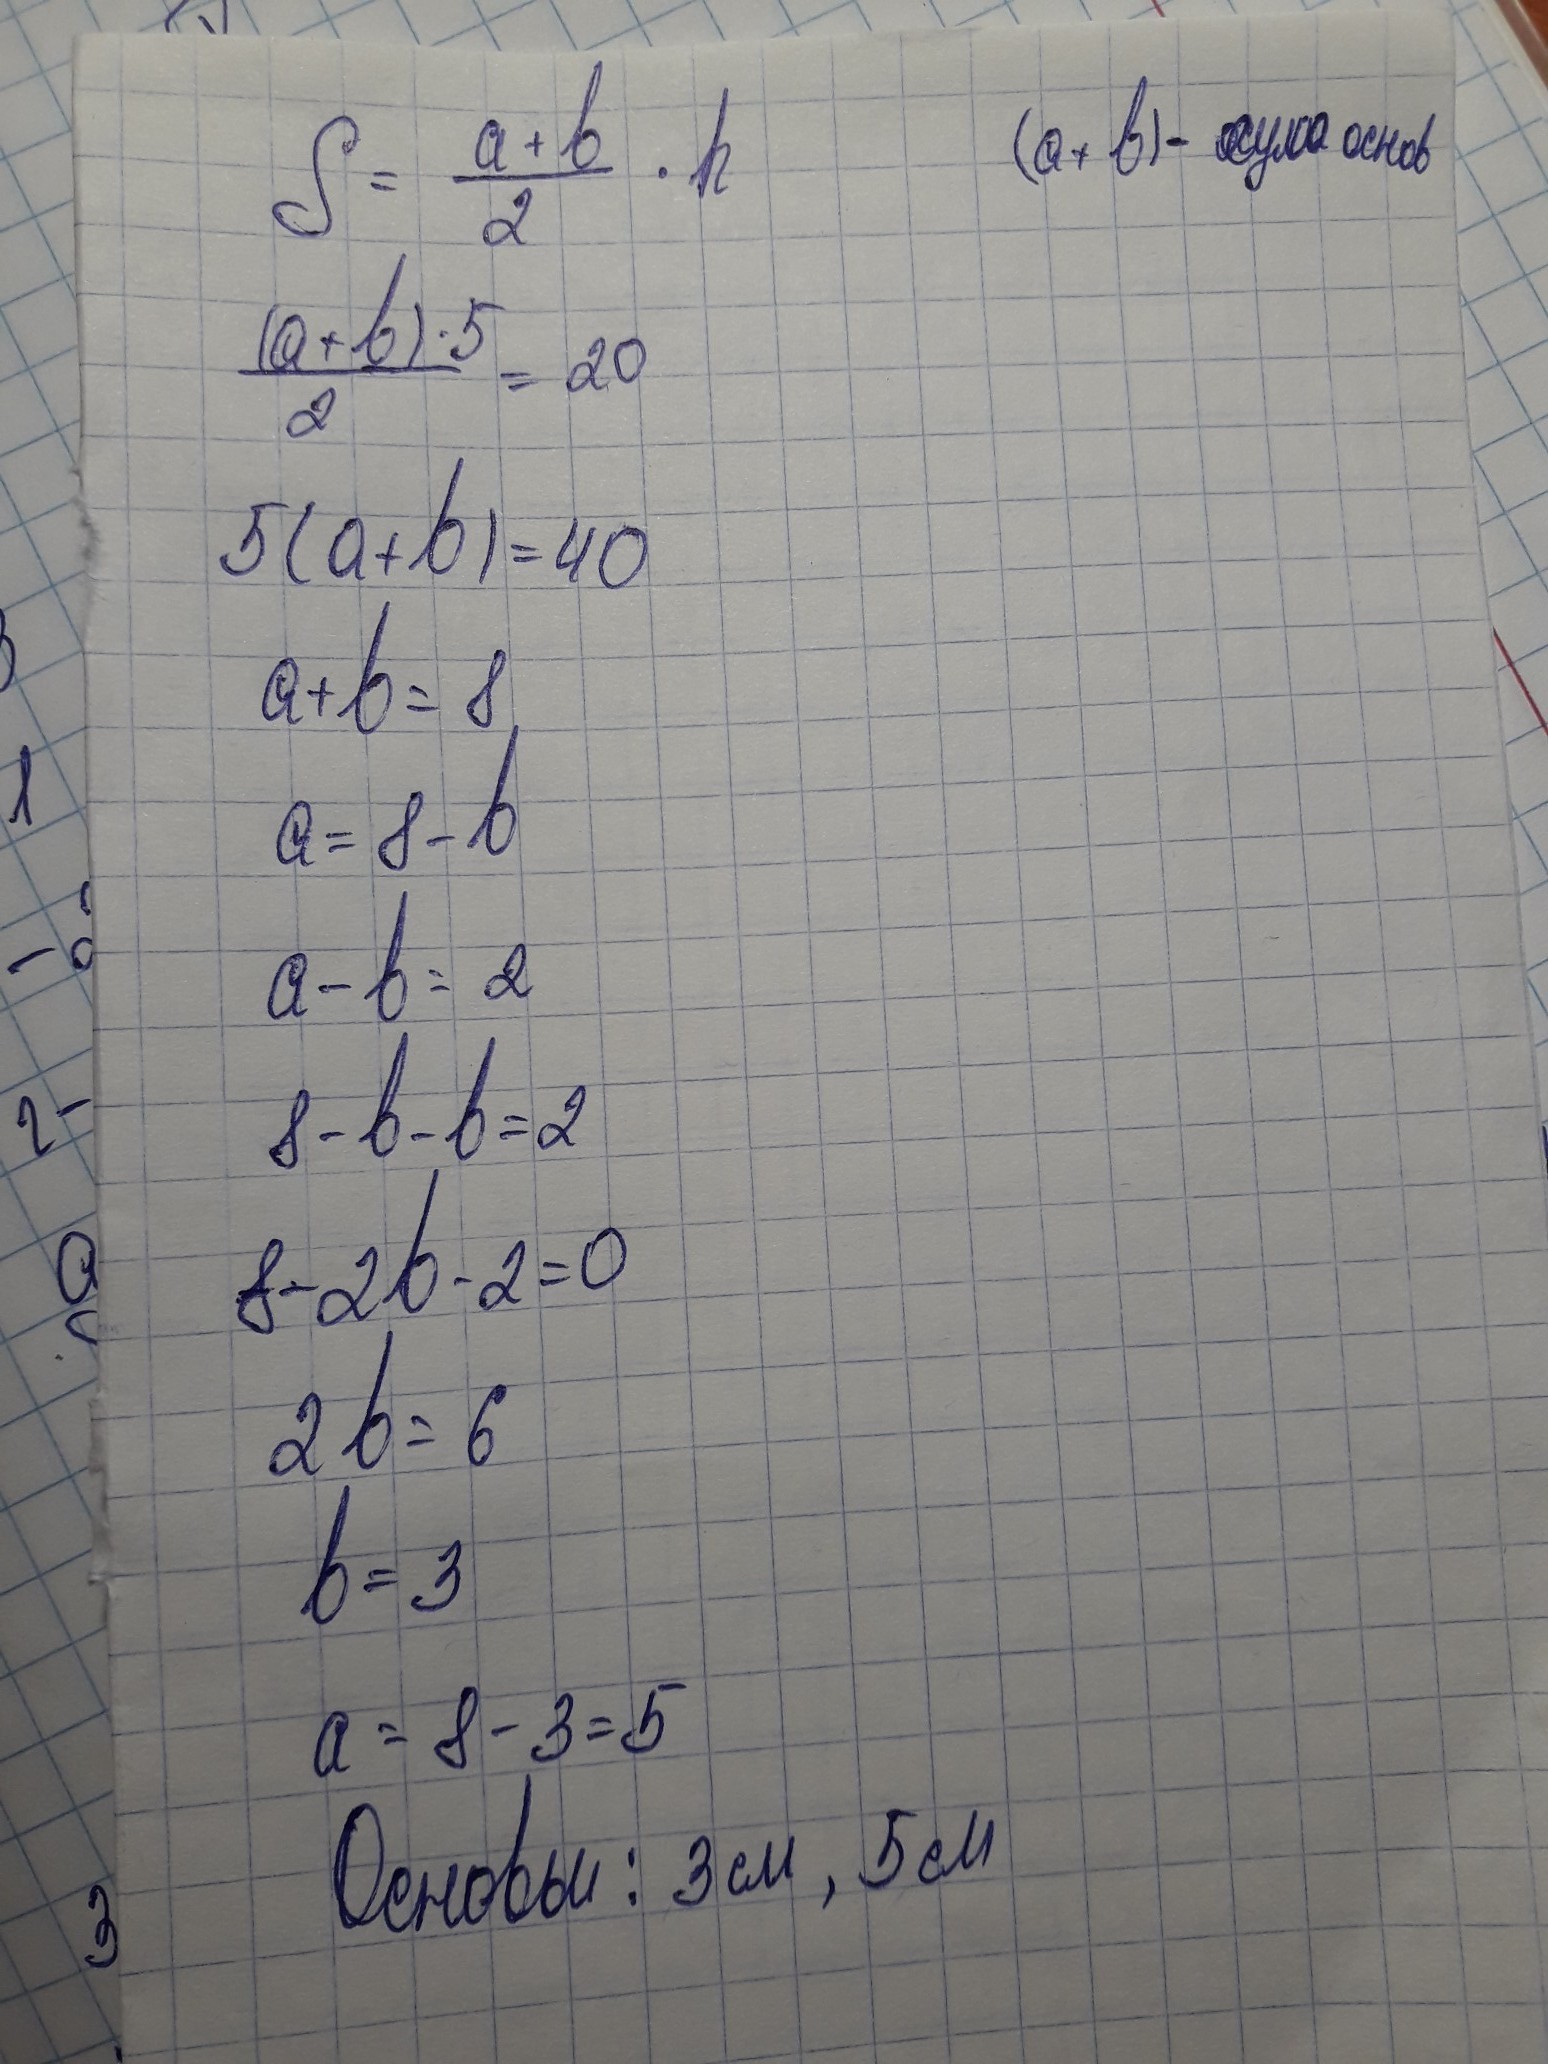 S = (a+b)/2 · h
(a+b) - сума основ
((a+b)·5)/2 = 20
5(a+b)=40
a+b=8
a=8-b
a-b=2
8-b-b=2
8-2b-2=0
2b=6
b=3
a=8-3=5
Основы: 3см, 5см
1
2-
a
3